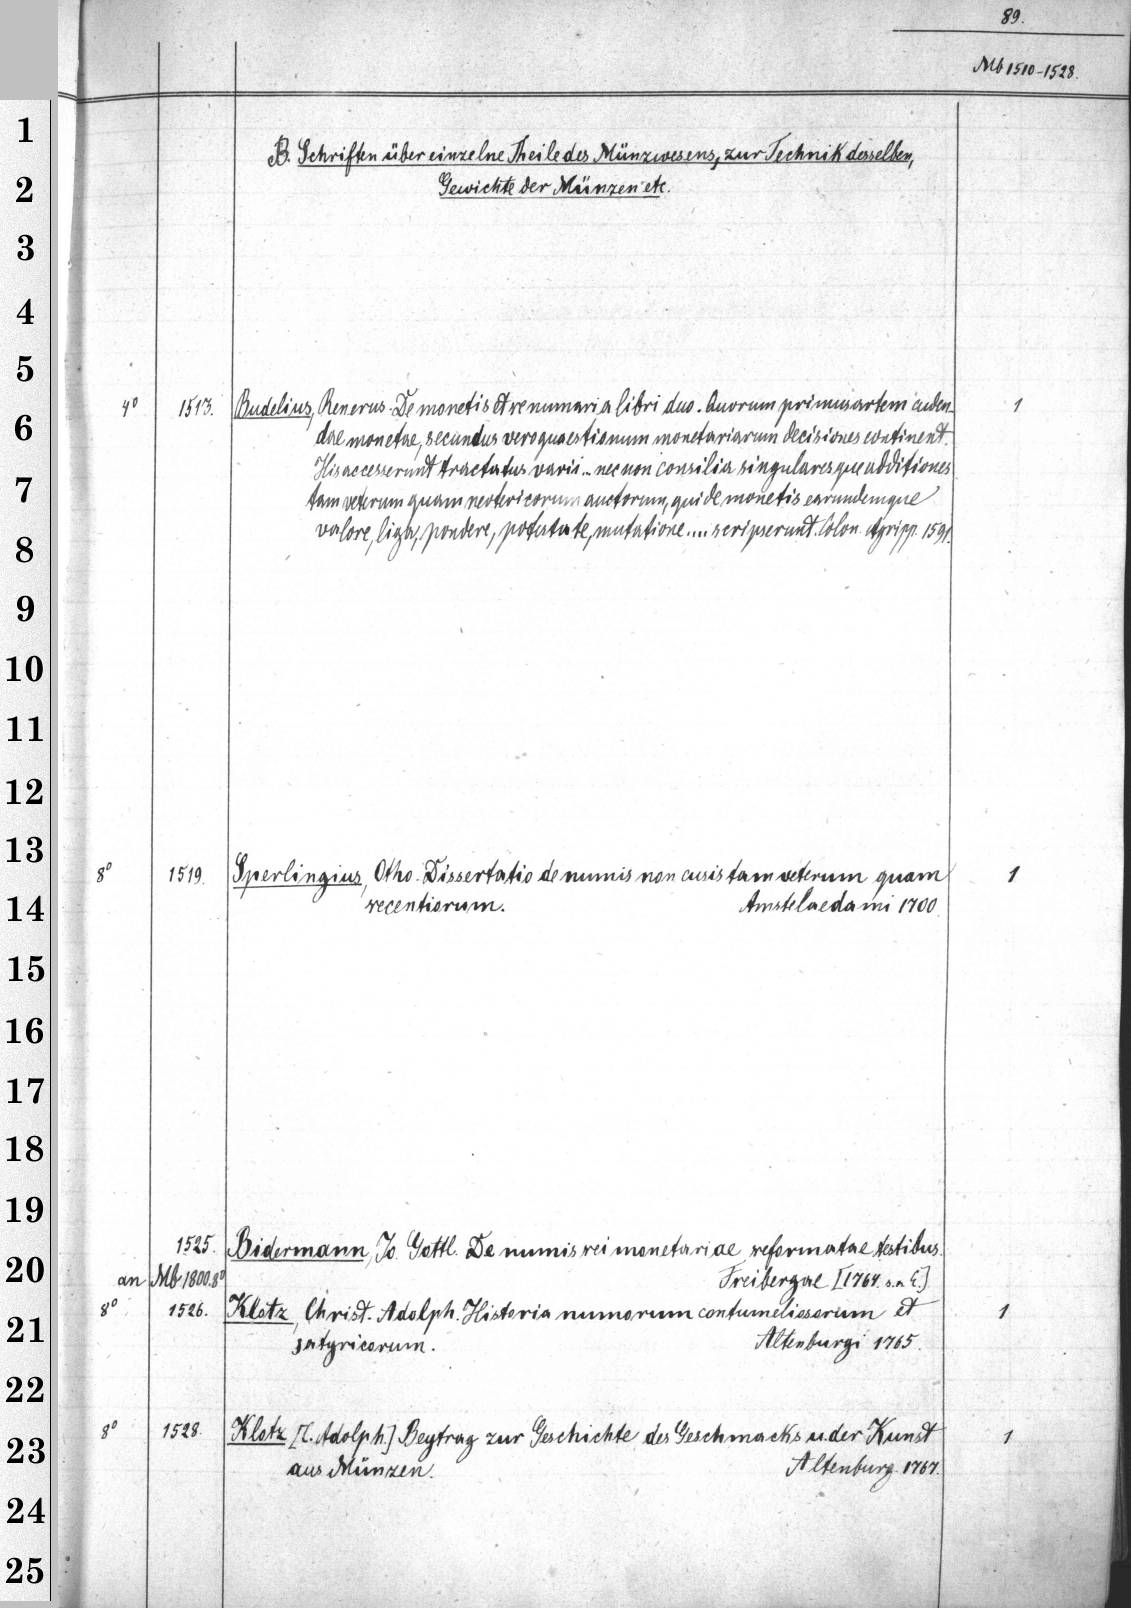 89.
Mb 1510-1528.
B. Schriften über einzelne Theile des Münzwesens, zur Technik desselben,
Gewichte der Münzen etc.
4° 1513. Budelius, Renerus. De monetis et re numaria libri duo. Quorum primus artem cuden-
dae monetae, secundus vero quaestionum monetariarum decisiones continent.
His accesserunt tractatus varii .. nec non consilia singularesque additiones
tam veterum quam neotericorum auctorum, qui de monetis earundemque
valore, liga, pondere, potestate, mutatione .... scripserunt. Colon. Agripp. 1591. 1
8° 1519. Sperlingius, Otho. Dissertatio de numis non cusis tam veterum quam 1
recentiorum. Amstelaedami 1700.
1525. Bidermann, Jo. Gottl. De numis rei monetariae reformatae testibus.
an Mb 1800.8° Freibergae [1764. s.a.E.]
8° 1526. Klotz, Christ. Adolph. Historia numorum contumeliosorum et 1
satyricorum. Altenburgi 1765.
8° 1528. Klotz [C. Adolph.] Beytrag zur Geschichte des Geschmacks u. der Kunst 1
aus Münzen. Altenburg. 1767.
1
2
3
4
5
6
7
8
9
10
11
12
13
14
15
16
17
18
19
20
21
22
23
24
25